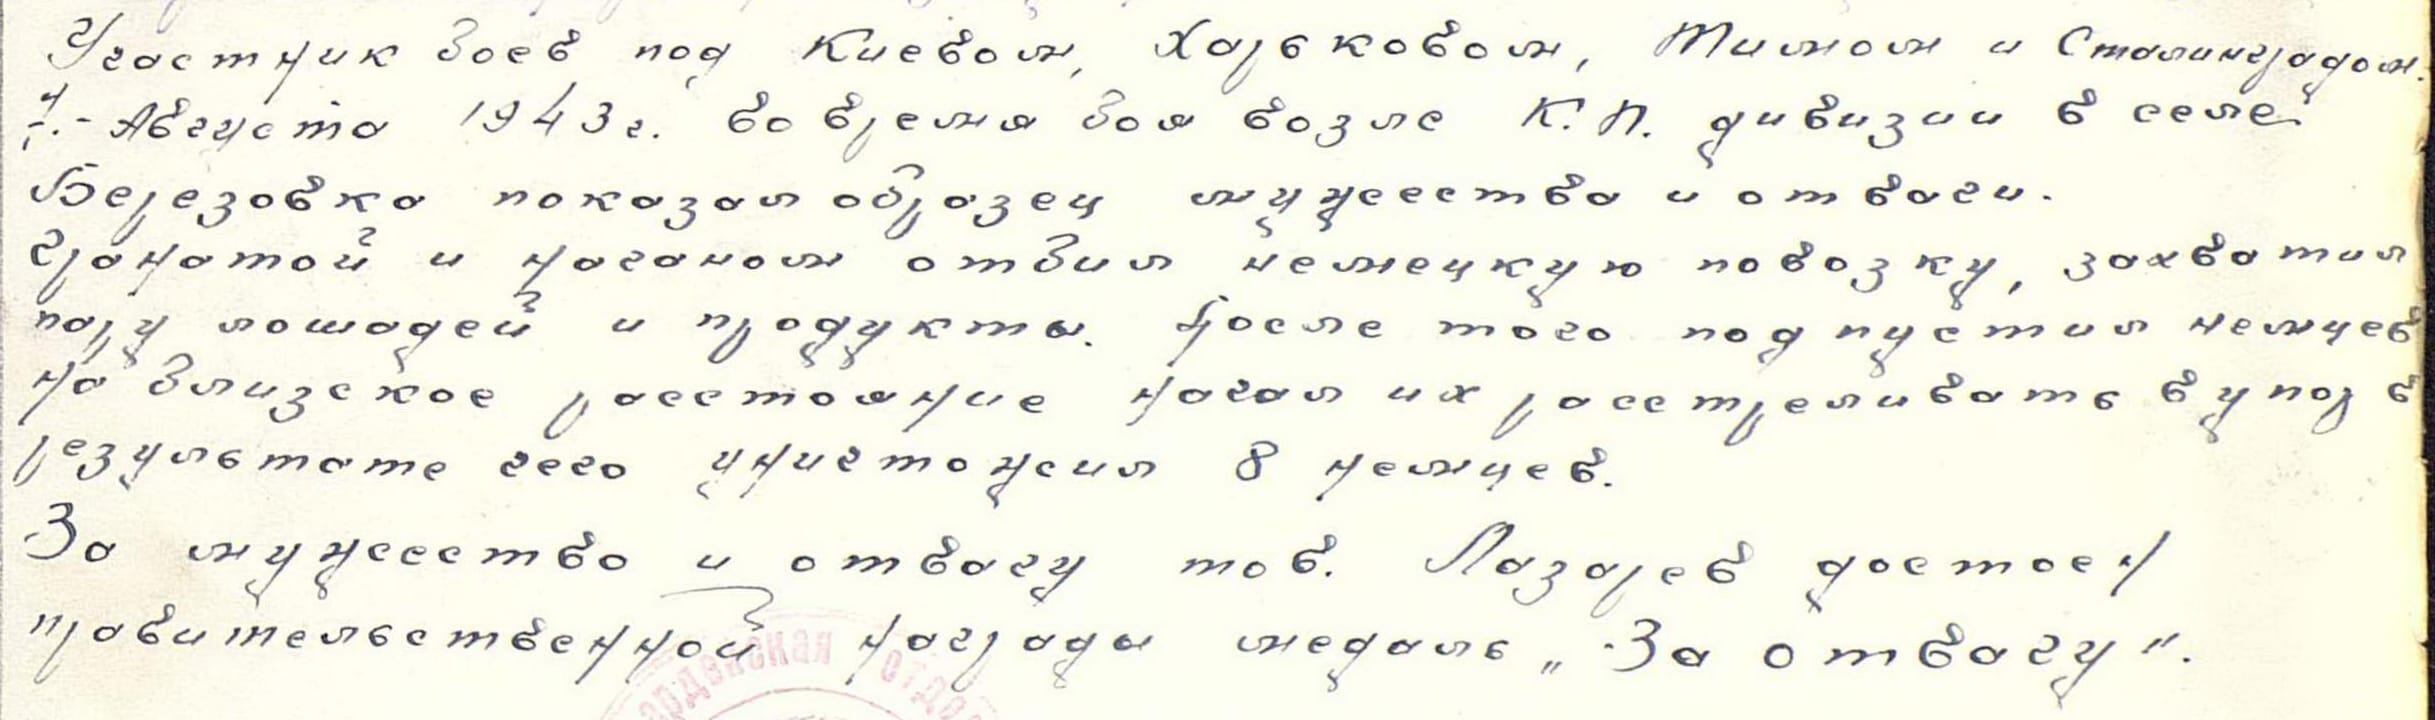 Участник боев под Киевом, Харьковом, Тимом и Сталинградом.
Августа 1943 г. во время боя возле К.П. дивизии в селе
Березовка показал образец мужества и отваги.
Гранатой и наганом отбил немецкую повозку, захватил
пару лошадей и продукты. После того подпустил немцев
на близское расстояние начал их расстреливать в упор в
результате чего уничтожил 8 немцев.
За мужество и отвагу тов. Лазарев достоен
правительственной награды медаль „За отвагу".